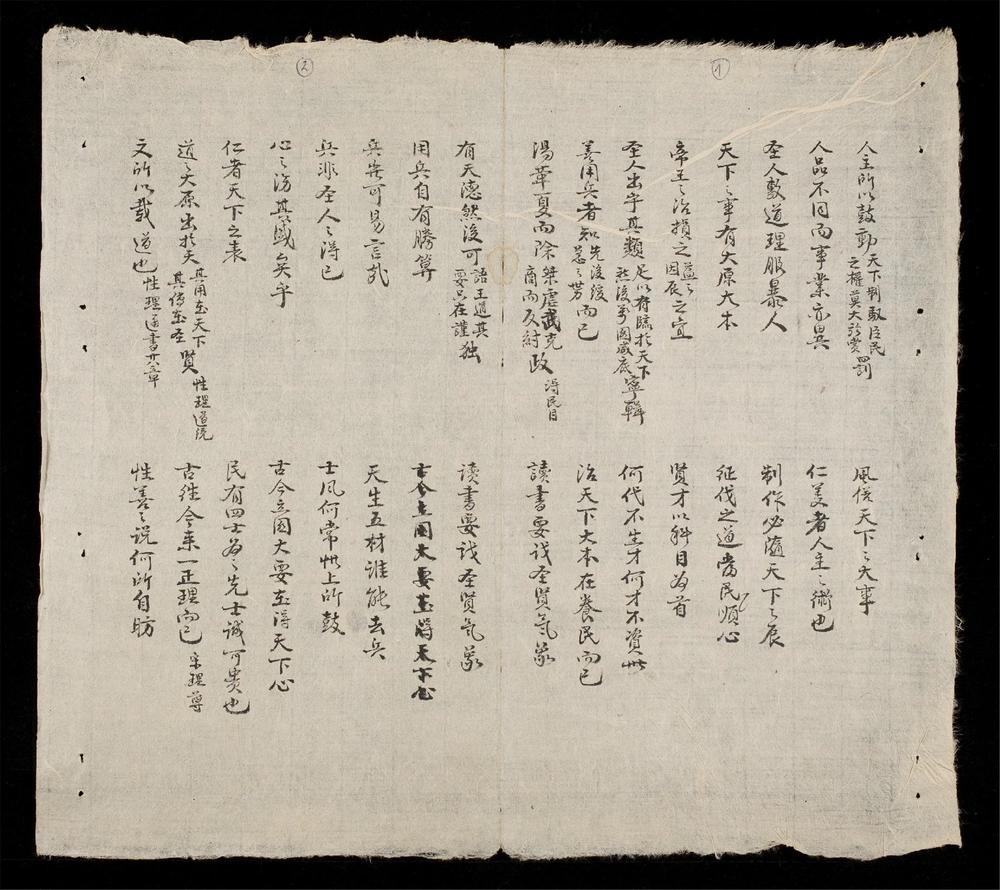 1
人主所以鼓動天下制馭臣民之權莫大於賞罰
風俗天下之大事
人品不同而事業亦異
仁義者人主之術也
圣人敷道理服暴人
制作必隨天下之宸
天下之事有大原大本
征伐之道當民順心
帝王之治損之益之因辰之宜
賢才以科目為首
圣人出乎其類足以有臨於天下然後萬國咸底寧輯
何代不生才何才不資世
善用兵者知先後後著之勢而已
治天下大本在養民而已
湯革夏而除桀虐武克商而反紂政 得民目
讀書要識圣賢氣象
2
有天德然後可語王道其要只在謹独
讀書要识圣賢氣象
用兵自有勝算
古今立國大要在得天下心
兵豈可易言哉
天生五材誰能去兵
兵非圣人之得已
士風何常世上所鼓
心之防其蔑矣乎
古今立國大要在得天下心
仁者天下之表
民有四士為之先士誠可貴也
道之大原出於天其用在天下其傳在圣賢 性理道统
古往今来一正理而已
文所以載道也 性理通書廿八章
性善之说何所自昉